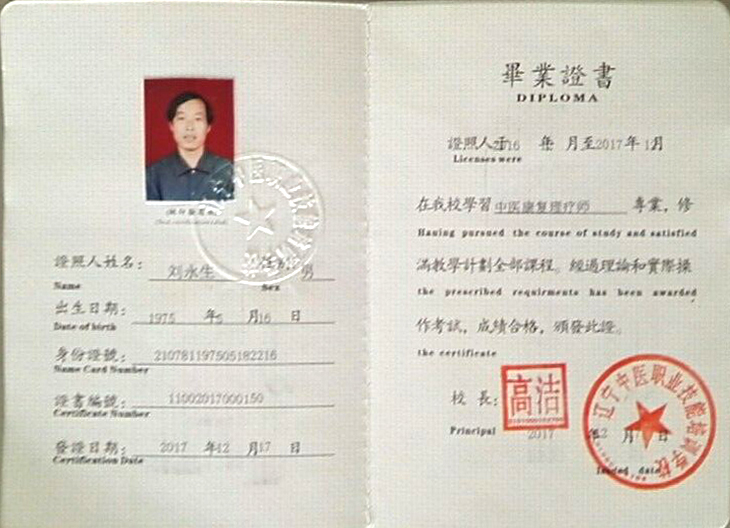 證照人姓名: 刘永生 性别: 男
Name Sex
出生日期: 1975 年5 月16 日
Date of birth
身份證號: 210781197505182216
Name Card Number
證書編號: 11002017000150
Certificate Number
發證日期: 2017 年12 月17 日
Certification Date
畢業證書
DIPLOMA
證照人于2016 年 月至2017年1月
Licenses were
在我校學習 中医康复理疗师 專業,修
Hauing pursued the course of study and satisfied
滿教學計劃全部課程。經過理論和實際操
the prescribed requirments has been awarded
作考試,成績合格,頒發此證。
the certificate
校長: 高洁
Principal 2017 年12 月 日
Issued date
辽宁中医职业技能培训学校